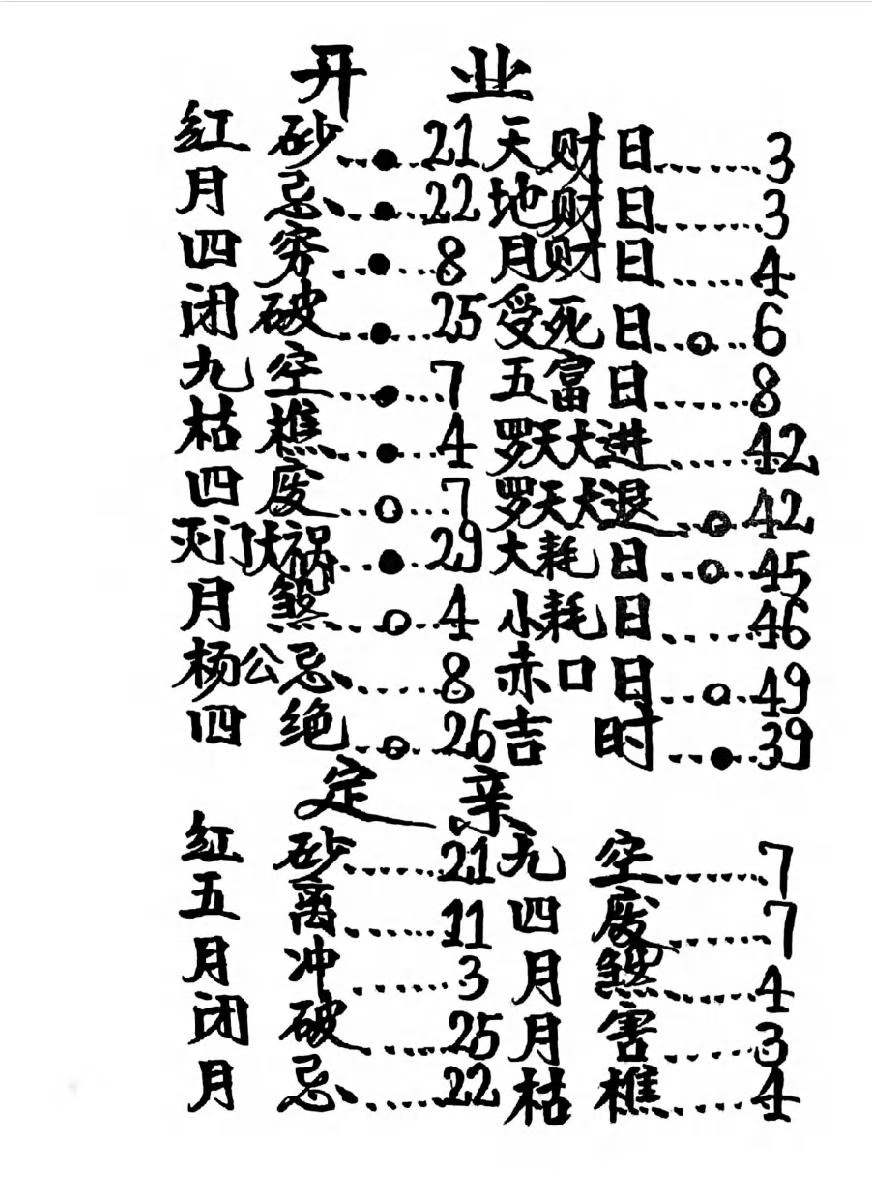 开 业
红 砂...●...21 天财日......3
月 忌...●...22 地财日......3
四 穷...●...8 月财日......4
闭 破...●...25 受死日...○...6
九 空...●...7 五富日......8
枯 樵...●...4 罗天大进......42
四 废...○...7 罗天大退...○...42
灭门大祸...●...29 大耗日...○...45
月 煞...○...4 小耗日......46
杨公忌......8 赤口日...○...49
四 绝...○...26 吉 时...●...39
定 亲
红 砂......21 九 空......7
五 离......11 四 废......7
月 冲......3 月 煞......4
闭 破......25 月 害......3
月 忌......22 枯 樵......4